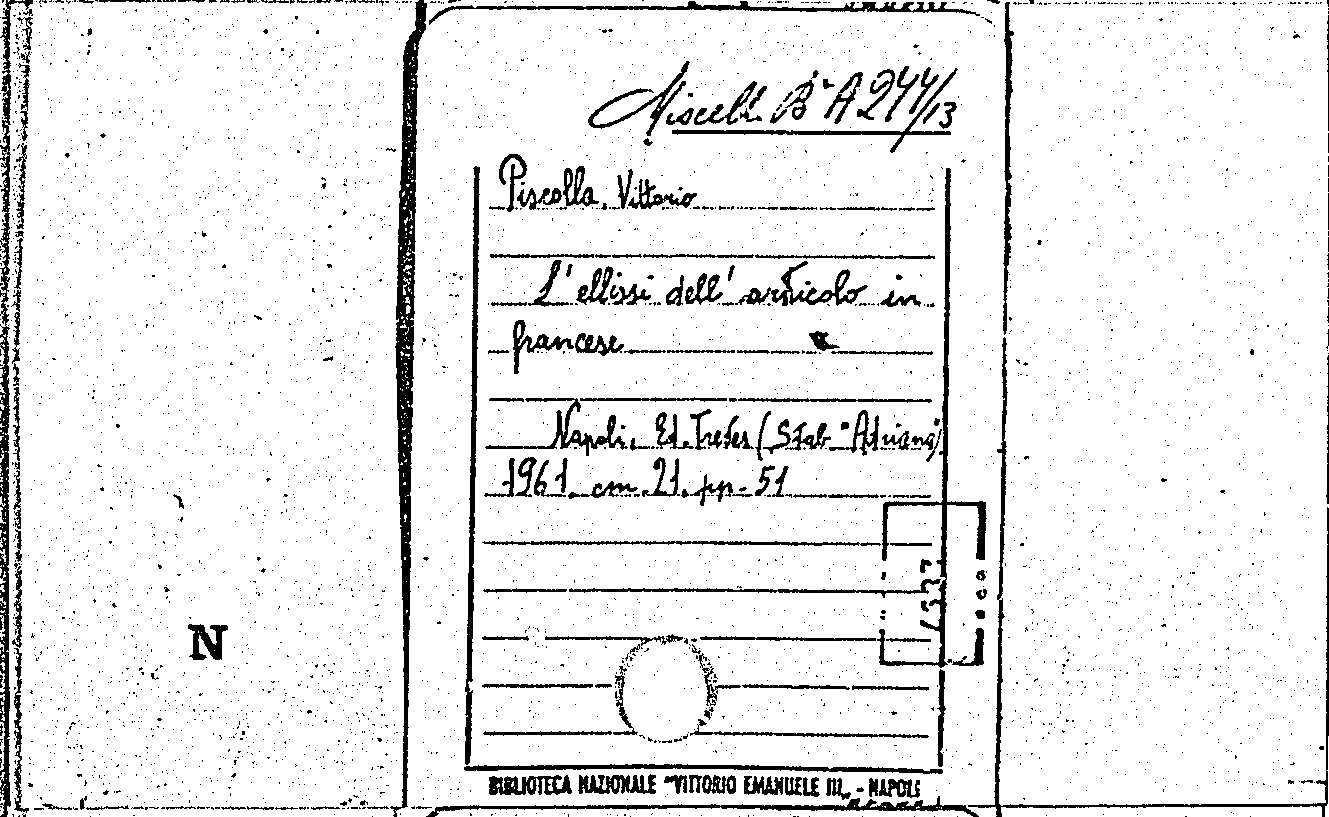 Miscell. Bª A 244/13
Piscolla, Vittorio
L'ellissi dell'articolo in
francese
Napoli. Ed. Trefes (Stab. "Adriana")
1961. cm. 21. pp. 51
N
BIBLIOTECA NAZIONALE "VITTORIO EMANUELE III„ - NAPOLI